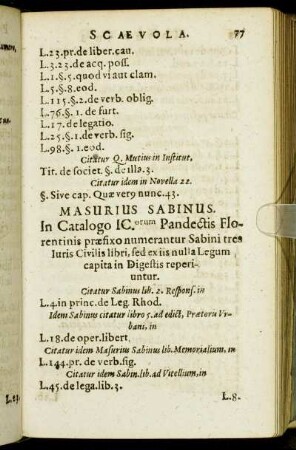 SCAEVOLA. 77
L.23.pr.de liber.cau.
L.3.23.de acq. poss.
L.1.§.5.quod vi aut clam.
L.5.§.8.eod.
L.115.§.2.de verb. oblig.
L.76.§.1. de furt.
L.17.de legatio.
L.25.§.1.de verb. sig.
L.98.§.1.eod.
Citatur Q. Mutius in Institut.
Tit. de societ. §. de illa.3.
Citatur idem in Novella 22.
§. Sive cap. Quæ verò nunc.43.
MASURIUS SABINUS.
In Catalogo IC.orum Pandectis Flo-
rentinis præfixo numerantur Sabini tres
Iuris Civilis libri, sed ex iis nulla Legum
capita in Digestis reperi-
untur.
Citatur Sabinus lib. 2. Respons. in
L.4.in princ.de Leg. Rhod.
Idem Sabinus citatur libro 5. ad edict. Prætoris Ur-
bani, in
L.18.de oper.libert.
Citatur idem Masurius Sabinus lib.Memorialium, in
L.144.pr. de verb.sig.
Citatur idem Sabin.lib.ad Vitellium, in
L.45.de lega.lib.3.
L.8.